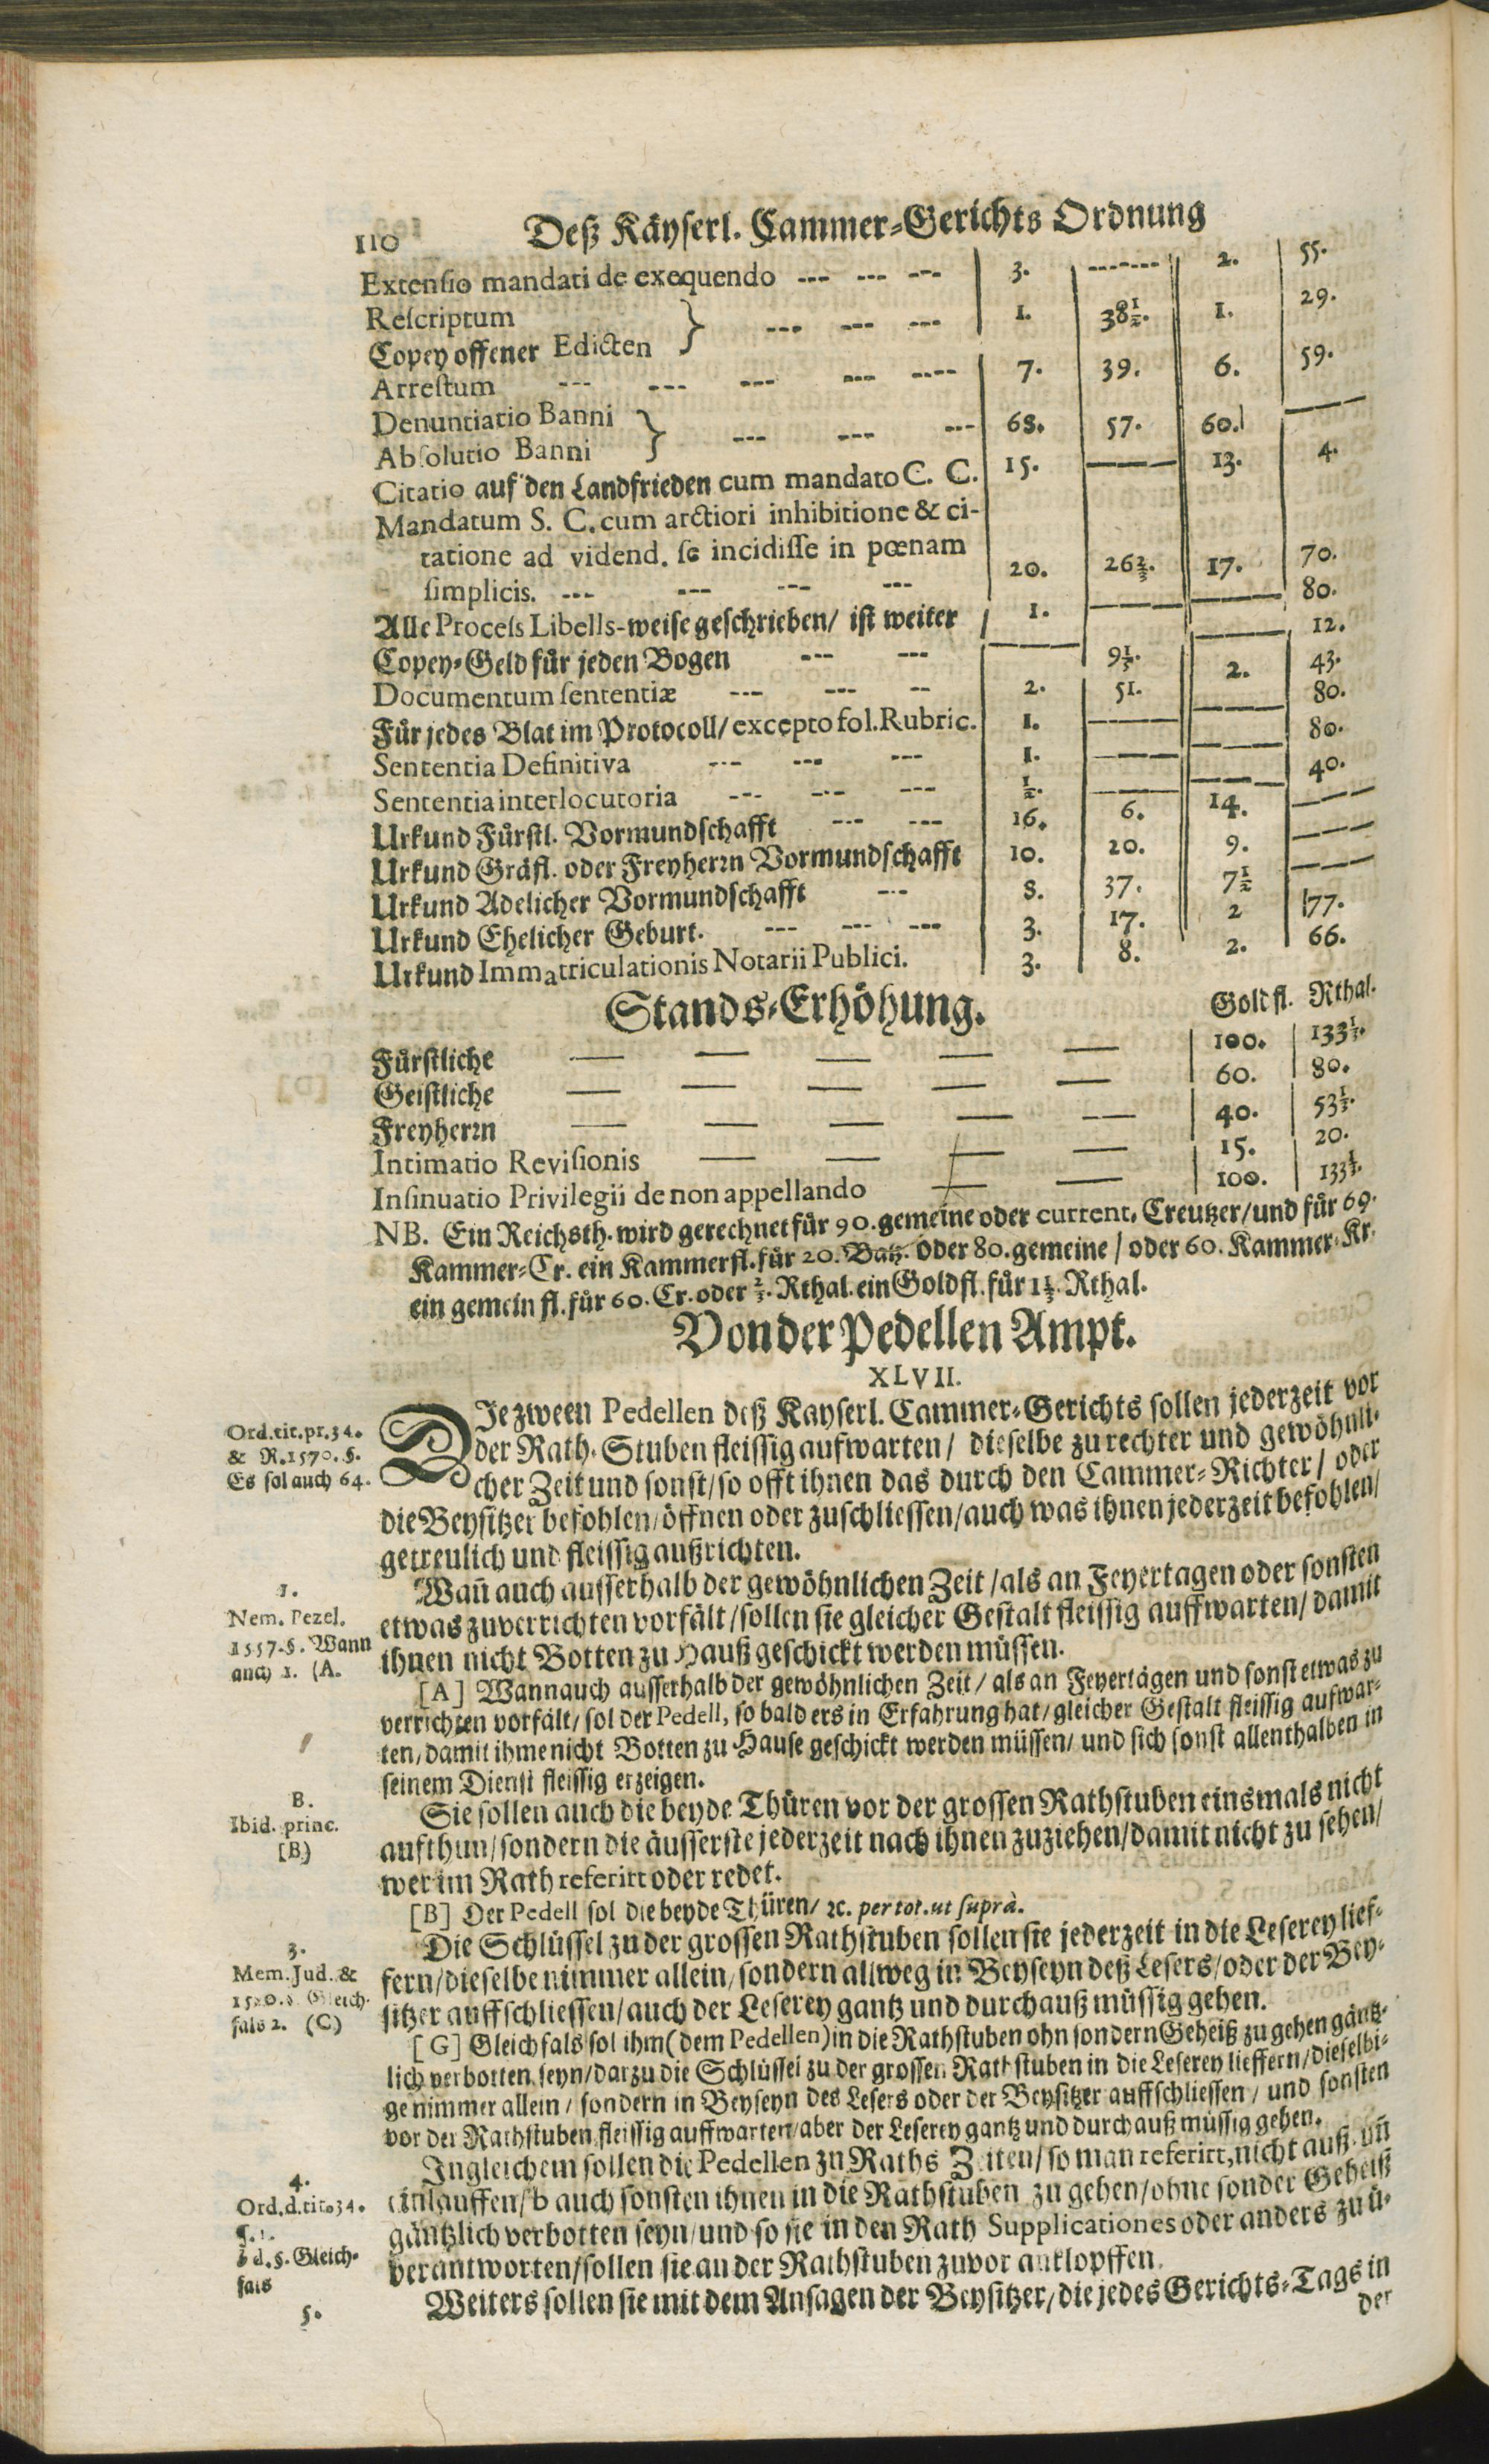 110 Deß Käyserl. Cammer-Gerichts Ordnung
Extensio mandati de exequendo --- --- --- 3. ------- 2. 55.
Rescriptum
Copey offener Edicten } --- --- --- 1. 38½. 1. 29.
Arrestum --- --- --- --- ---- 7. 39. 6. 59.
Denuntiatio Banni
Absolutio Banni } --- --- --- 68. 57. 60. ———
Citatio auf den Landfrieden cum mandato C. C. 15. ——— 13. 4.
Mandatum S. C. cum arctiori inhibitione & ci-
tatione ad vidend. se incidisse in pœnam
simplicis. --- --- --- --- 20. 26⅔. 17. 70.
Alle Process Libells-weise geschrieben/ ist weiter 1. ——— ——— 80.
Copey-Geld für jeden Bogen --- --- ——— 9⅓. ——— 12.
Documentum sententiæ --- --- -- 2. 51. 2. 43.
Für jedes Blat im Protocoll/ excepto fol. Rubric. 1. ——— ——— 80.
Sententia Definitiva --- --- --- 1. ——— ——— 80.
Sententia interlocutoria --- --- --- ½. ——— ——— 40.
Urkund Fürstl. Vormundschafft --- --- 16. 6. 14. ———
Urkund Gräfl. oder Freyherrn Vormundschafft 10. 20. 9. ———
Urkund Adelicher Vormundschafft --- 8. 37. 7½ ———
Urkund Ehelicher Geburt. --- --- --- 3. 17. 2 77.
Urkund Immatriculationis Notarii Publici. 3. 8. 2. 66.
Stands-Erhöhung. Goldfl. Rthal.
Fürstliche — — — — — 100. 133⅓.
Geistliche — — — — — 60. 80.
Freyherrn — — — — — 40. 53⅓.
Intimatio Revisionis — — — — 15. 20.
Insinuatio Privilegii de non appellando — — 100. 133⅓.
NB. Ein Reichsth. wird gerechnet für 90. gemeine oder current. Creutzer/ und für 69.
Kammer-Cr. ein Kammerfl. für 20. Batz. oder 80. gemeine / oder 60. Kammer-Kr.
ein gemein fl. für 60. Cr. oder ⅔. Rthal. ein Goldfl. für 1⅓. Rthal.
Von der Pedellen Ampt.
XLVII.
Ord. tit. pr. 34.
& R. 1570. §.
Es sol auch 64.
DJe zween Pedellen deß Kayserl. Cammer-Gerichts sollen jederzeit vor
der Rath-Stuben fleissig aufwarten/ dieselbe zu rechter und gewöhnli-
cher Zeit und sonst/ so offt ihnen das durch den Cammer-Richter/ oder
die Beysitzer befohlen/ öffnen oder zuschliessen/ auch was ihnen jederzeit befohlen/
getreulich und fleissig außrichten.
1.
Nem. Pezel.
1557. §. Wann
auch 1. (A.
Wañ auch ausserhalb der gewöhnlichen Zeit/ als an Feyertagen oder sonsten
etwas zuverrichten vorfält/ sollen sie gleicher Gestalt fleissig auffwarten/ damit
ihnen nicht Botten zu Hauß geschickt werden müssen.
[A] Wann auch ausserhalb der gewöhnlichen Zeit/ als an Feyertägen und sonst etwas zu
verrichten vorfält/ sol der Pedell, so bald ers in Erfahrung hat/ gleicher Gestalt fleissig aufwar-
ten/ damit ihme nicht Botten zu Hause geschickt werden müssen/ und sich sonst allenthalben in
seinem Dienst fleissig erzeigen.
B.
Ibid. princ.
[B]
Sie sollen auch die beyde Thüren vor der grossen Rathstuben einsmals nicht
aufthun/ sondern die äusserste jederzeit nach ihnen zuziehen/ damit nicht zu sehen/
wer im Rath referirt oder redet.
[B] Der Pedell sol die beyde Thüren/ ꝛc. per tot. ut suprà.
3.
Mem. Jud. &
Gleich-
fals 2. (C)
Die Schlüssel zu der grossen Rathstuben sollen sie jederzeit in die Leserey lief-
fern/ dieselbe nimmer allein/ sondern allweg in Beyseyn deß Lesers/ oder der Bey-
sitzer auffschliessen/ auch der Leserey gantz und durchauß müssig gehen.
[G] Gleichfals sol ihm (dem Pedellen) in die Rathstuben ohn sondern Geheiß zu gehen gäntz-
lich verbotten seyn/ darzu die Schlüssel zu der grossen Rathstuben in die Leserey lieffern/ dieselbi-
ge nimmer allein/ sondern in Beyseyn des Lesers oder der Beysitzer auffschliessen/ und sonsten
vor der Rathstuben fleissig auffwarten/ aber der Leserey gantz und durchauß müssig gehen.
4.
Ord. d. tit. 34.
§. 1.
d. §. Gleich-
fals
Ingleichem sollen die Pedellen zu Raths Zeiten/ so man referirt, nicht auß uñ
einlauffen/ auch sonsten ihnen in die Rathstuben zu gehen/ ohne sonder Geheiß
gäntzlich verbotten seyn/ und so sie in den Rath Supplicationes oder anders zu ü-
berantworten/ sollen sie an der Rathstuben zuvor anklopffen.
5.
Weiters sollen sie mit dem Ansagen der Beysitzer/ die jedes Gerichts-Tags in
der